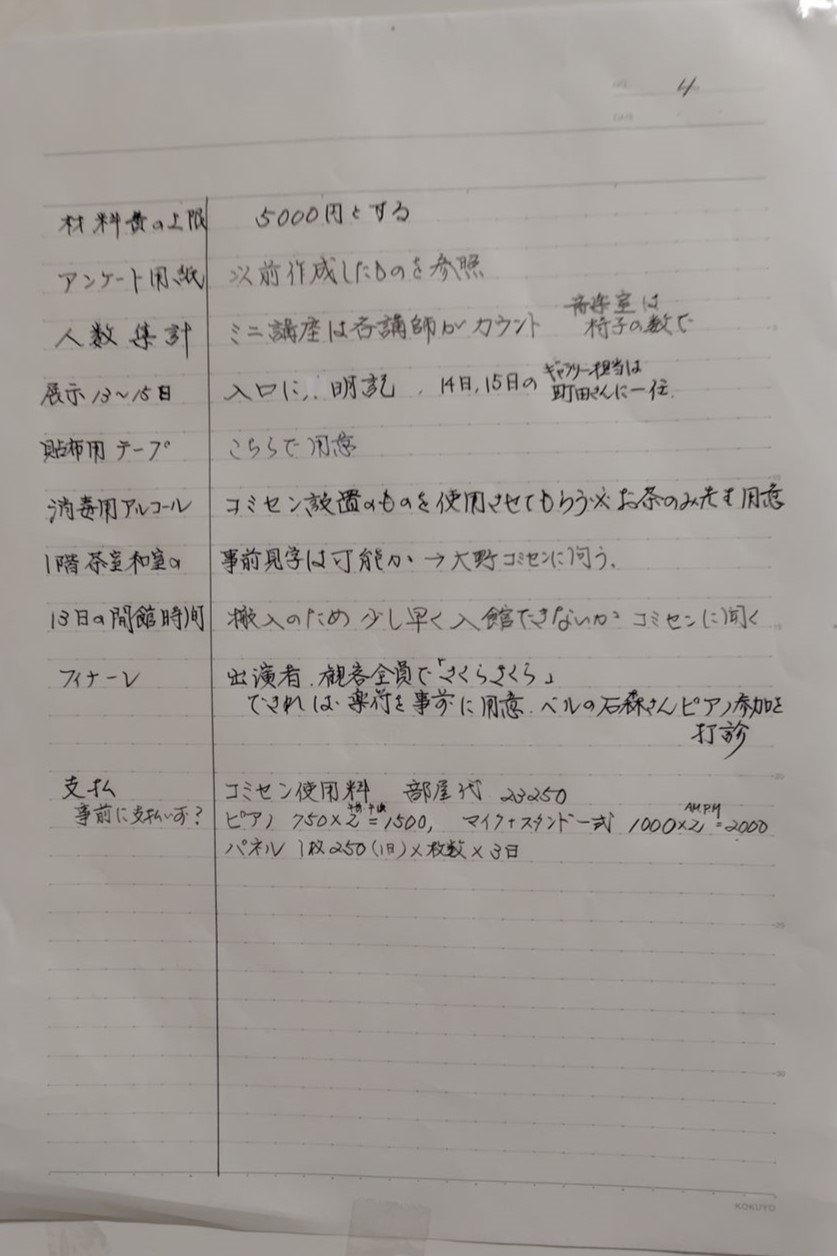 4
材料費の上限 5000円とする
アンケート用紙 以前作成したものを参照
人数集計 ミニ講座は各講師がカウント 音楽室は
椅子の数で
展示13〜15日 入口に、明記、14日,15日の ギャラリー担当は
町田さんに一任.
貼布用テープ こちらで用意
消毒用アルコール コミセン設置のものを使用させてもらう※お茶のみ先も用意
1階茶室和室の 事前見学は可能か→大野コミセンに伺う.
13日の開館時間 搬入のため少し早く入館できないか コミセンに聞く
フィナーレ 出演者、観客全員で「さくらさくら」
できれば楽符を事前に用意.ベルの石森さんピアノ参加を
打診
支払 コミセン使用料 部屋代 23250
事前に支払いす? ピアノ 750×2=1500, マイク+スタンド一式 1000×2=2000
午前 午後 AM.PM
パネル 1枚250(1日)×枚数×3日
KOKUYO